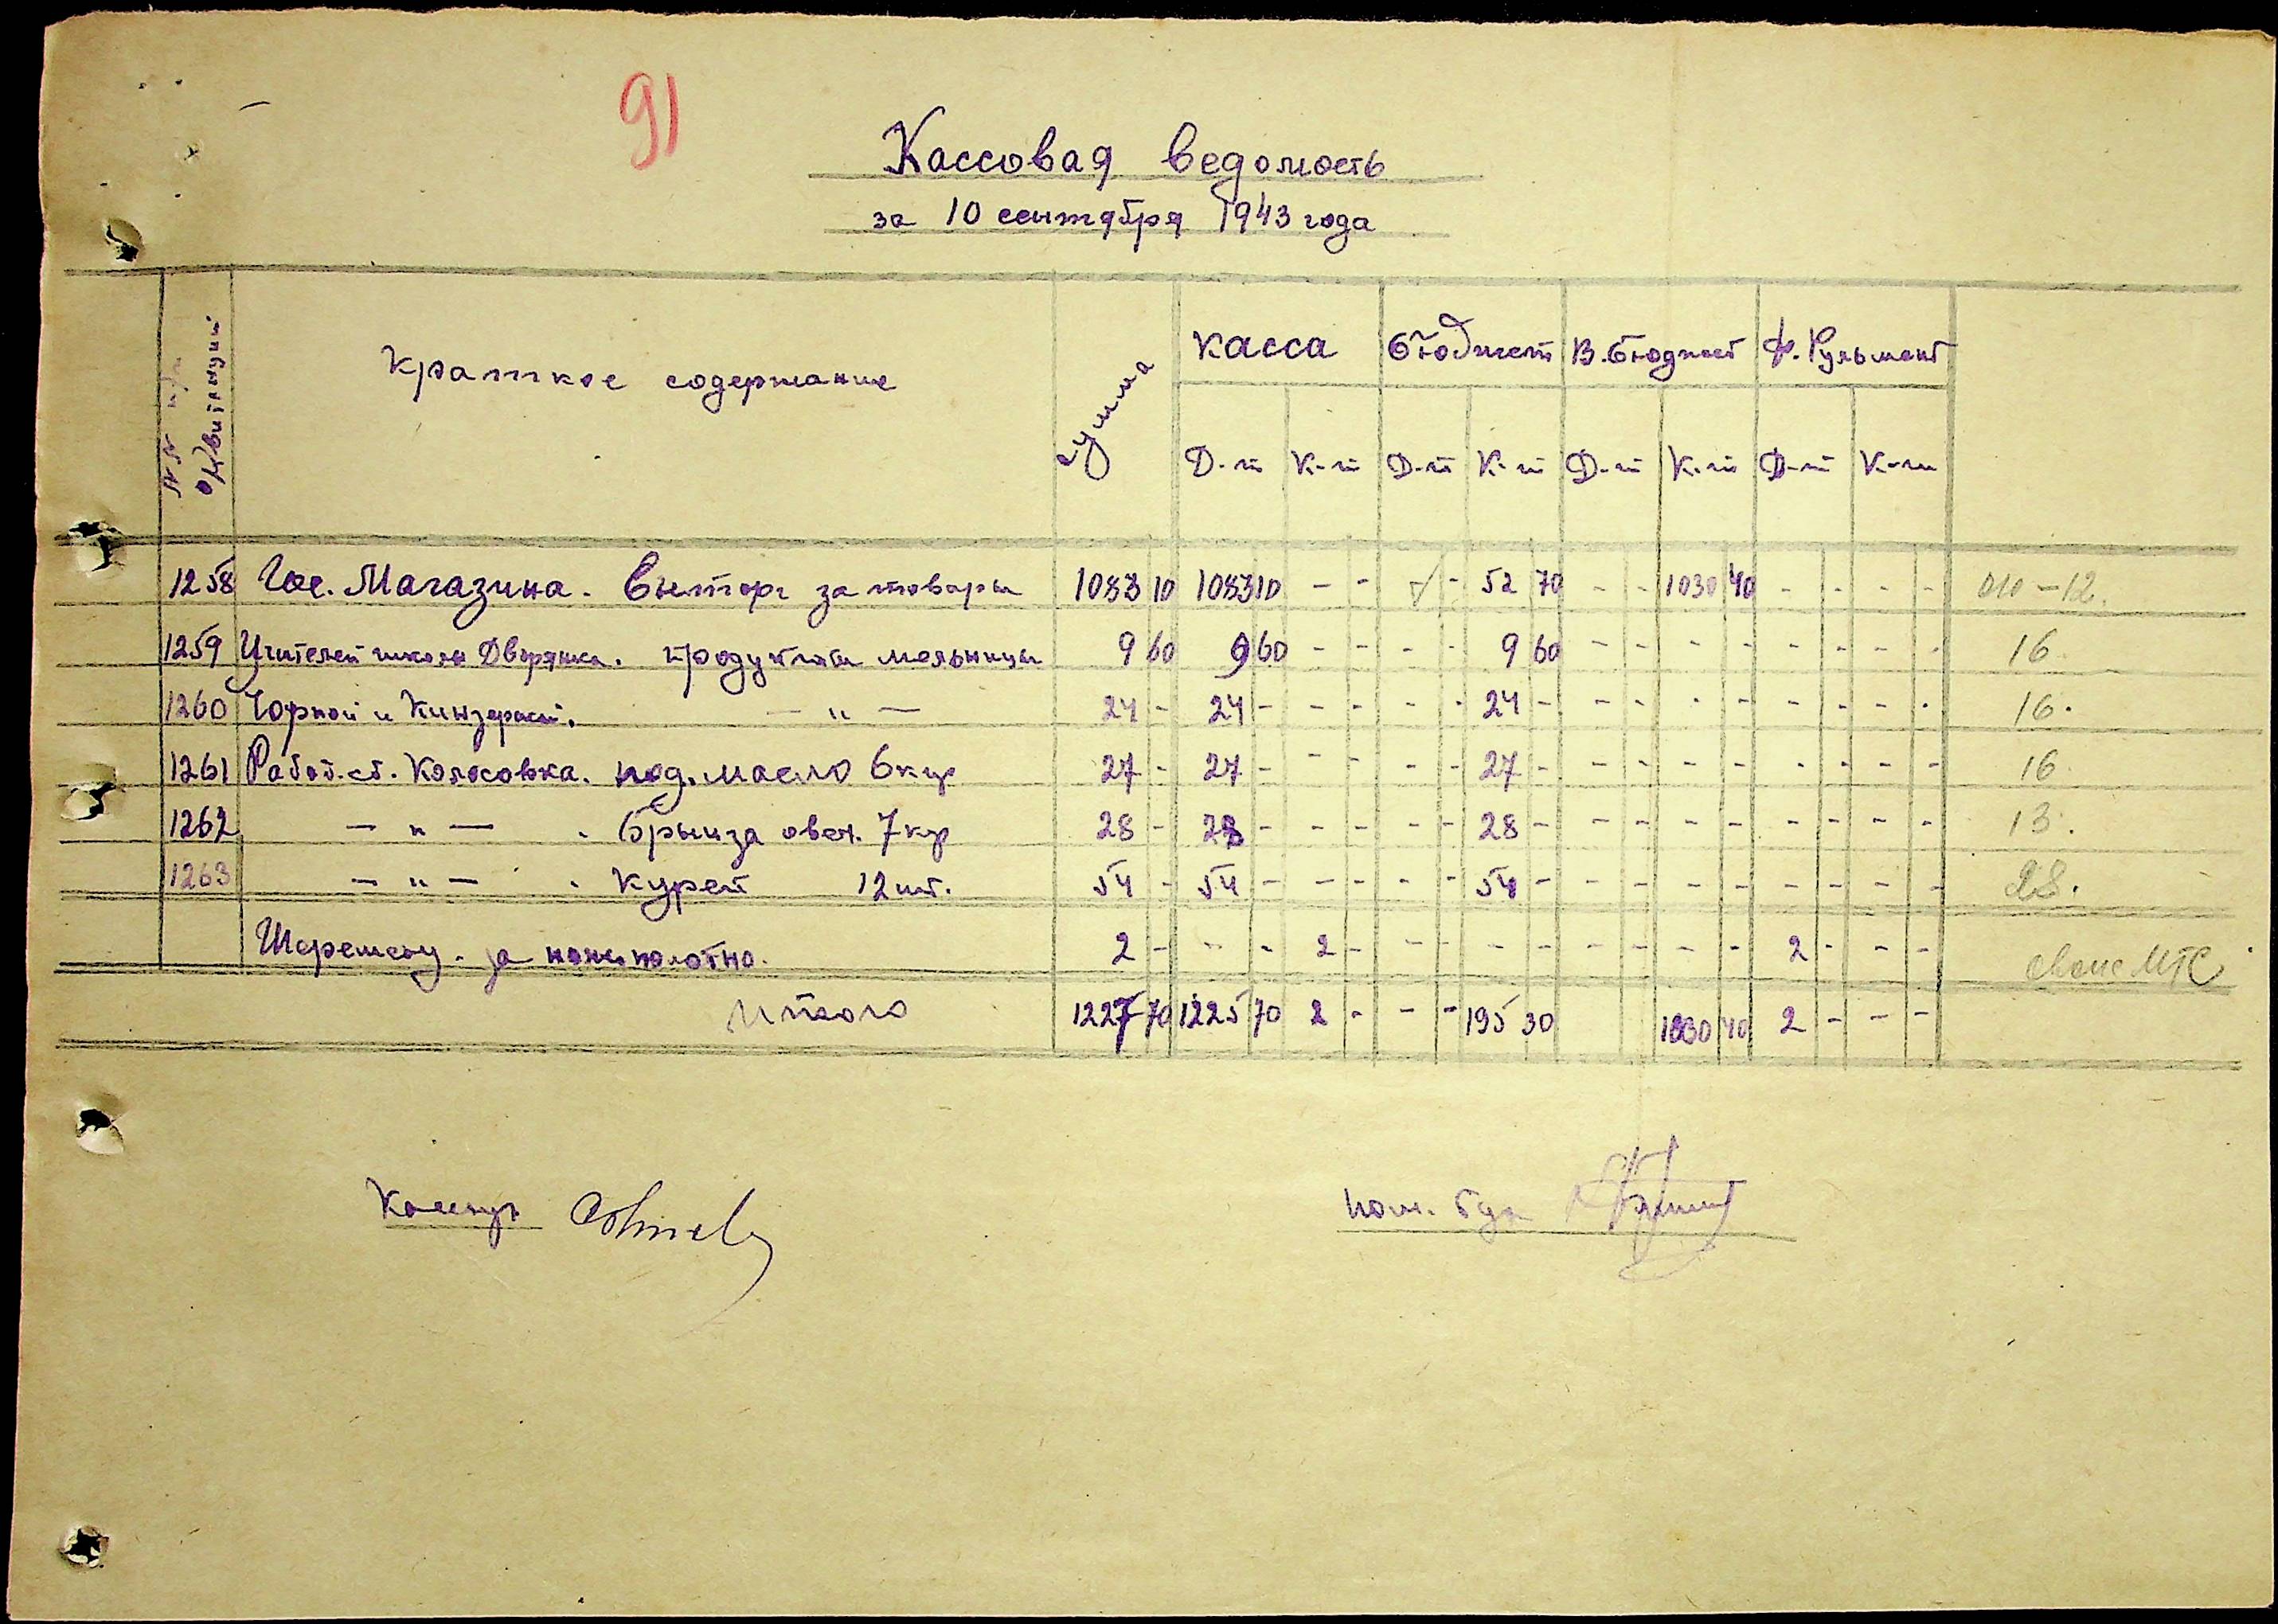 91
Кассовая ведомость
за 10 сентября 1943 года
N.N п/п квитанций
Краткое содержание
сумма
касса
бюджет
В. бюджет
Д-т К-т Д-т К-т Д-т К-т Д-т К-т
1258 Гос. Магазина. Выторг за товары 1083 10 1083 10 - - - 52 70 - - 1030 40 - - - - 010-12.
1259 Учителей школы Дворянка. мельницы 9 60 9 60 - - - - 9 60 - - - - - - - - 16
1260 Чорной и — " — 24 - 24 - - - - - 24 - - - - - - - - - 16.
1261 Работ. ст. Колосовка. под. масло 6 кгр 27 - 27 - - - - - 27 - - - - - - - - - 16
1262 — " — . Брынза овеч. 7 кгр 28 - 28 - - - - - 28 - - - - - - - - - 13.
1263 — " — . Курей 12 шт. 54 - 54 - - - - - 54 - - - - - - - - - 28.
за 2 - - - 2 - - - - - - - - - 2 - - - МТС
Итого 1227 70 1225 70 2 - - - 195 30 1030 40 2 - - -
пом. бух